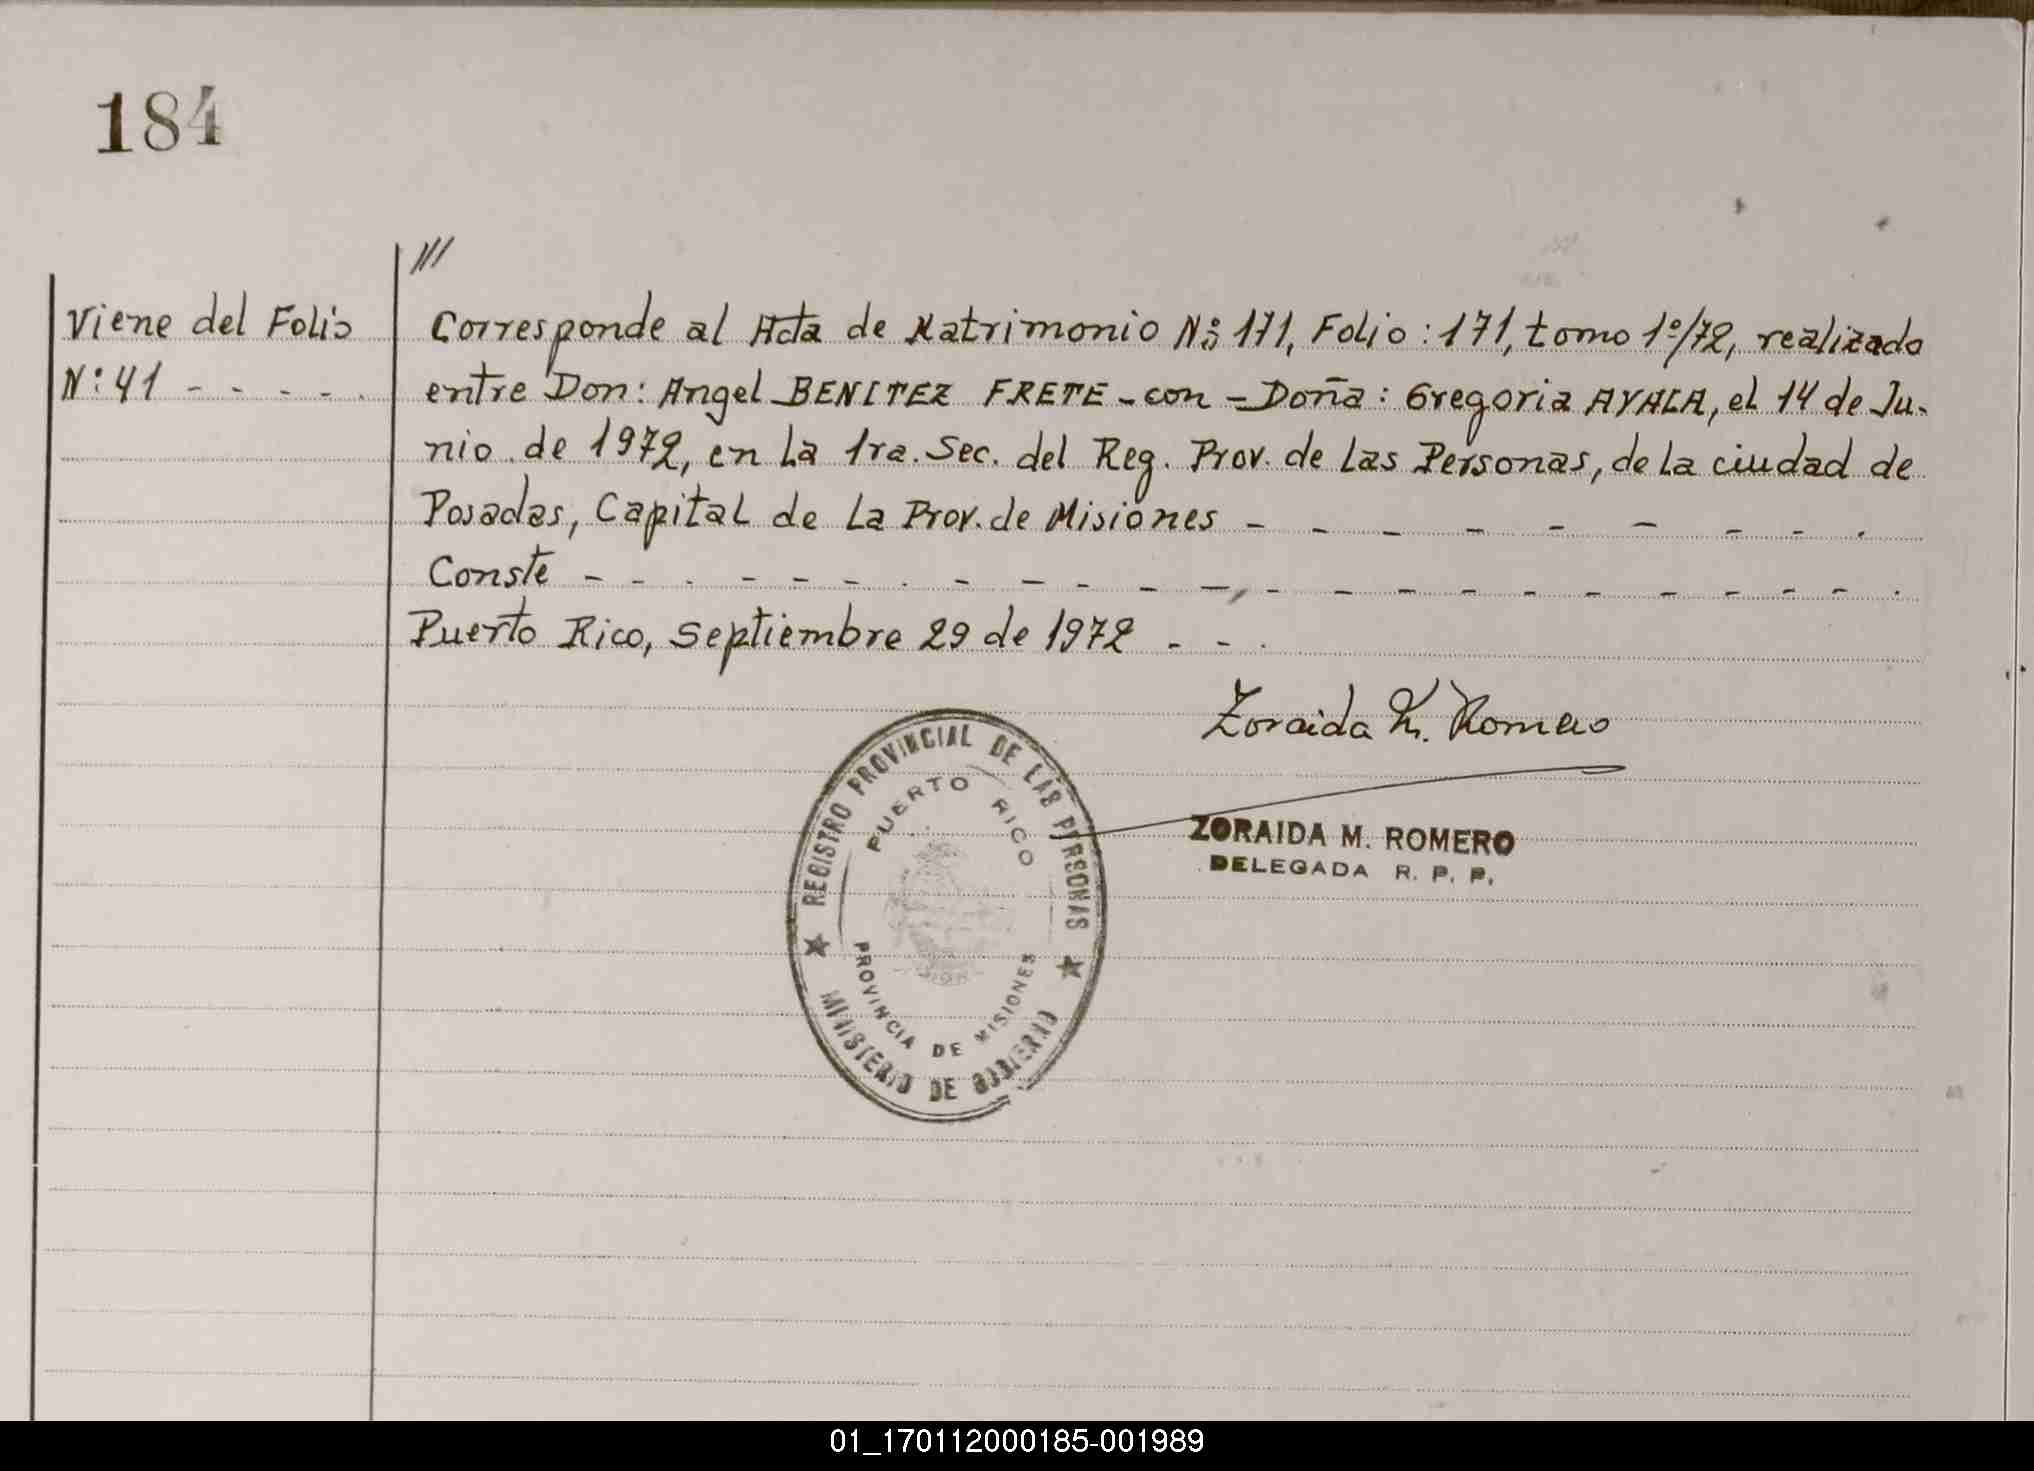 184
///
Viene del Folio
N°: 41 - - - -
Corresponde al Acta de Matrimonio N° 171, Folio: 171, tomo 1°/72, realizado
entre Don: Angel BENITEZ FRETE - con - Doña: Gregoria AYALA, el 14 de Ju-
nio de 1972, en la 1ra. Sec. del Reg. Prov. de las Personas, de la ciudad de
Posadas, Capital de la Prov. de Misiones - - - - - - - - -
Conste - - - - - - - - - - - - - - - - - - - -
Puerto Rico, Septiembre 29 de 1972 - - .
Zoraida M. Romero
ZORAIDA M. ROMERO
DELEGADA R. P. P.
REGISTRO PROVINCIAL DE LAS PERSONAS
PUERTO RICO
PROVINCIA DE MISIONES
MINISTERIO DE GOBIERNO
01_170112000185-001989